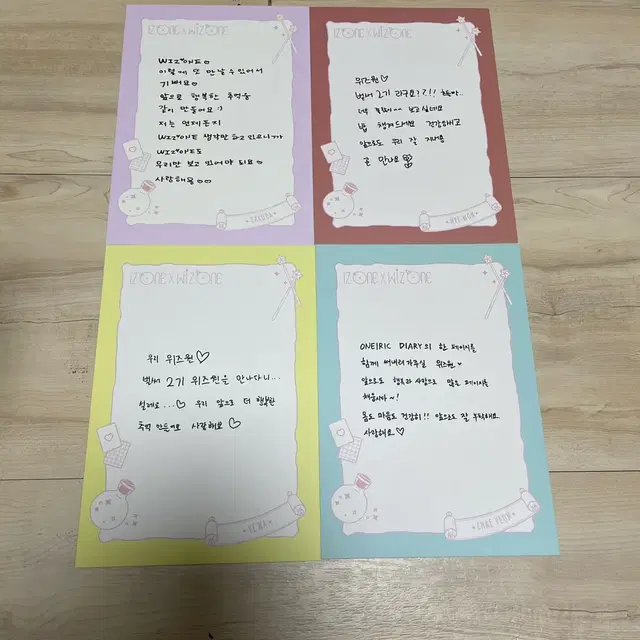 IZ*ONE X WIZ*ONE
WIZ*ONE♡
이렇게 또 만날 수 있어서
기뻐요♡
앞으로 행복한 추억을
같이 만들어요 :)
저는 언제든지
WIZ*ONE 생각만 하고 있으니까
WIZ*ONE도
우리만 보고 있어야 돼요♡
사랑해용♡♡
SAKURA
IZ*ONE X WIZ*ONE
위즈원♡
벌써 2기 라구요??!!
보고싶네요
밥 챙겨드시고 건강하시고
앞으로도 우리 잘 지내용
곧 만나요
HYE WON
IZ*ONE X WIZ*ONE
우리 위즈원♡
벌써 2기 위즈원을 만나다니...
설레요...♡ 우리 앞으로 더 행복한
추억 만들어요 사랑해요♡
YENA
IZ*ONE X WIZ*ONE
ONEIRIC DIARY의 한 페이지를
함께 써내려가주실 위즈원♡
앞으로도 행복과 사랑으로 많은 페이지를
채웁시다~!
몸도 마음도 건강히!! 앞으로도 잘 부탁해요
사랑해요♡
CHAE YEON